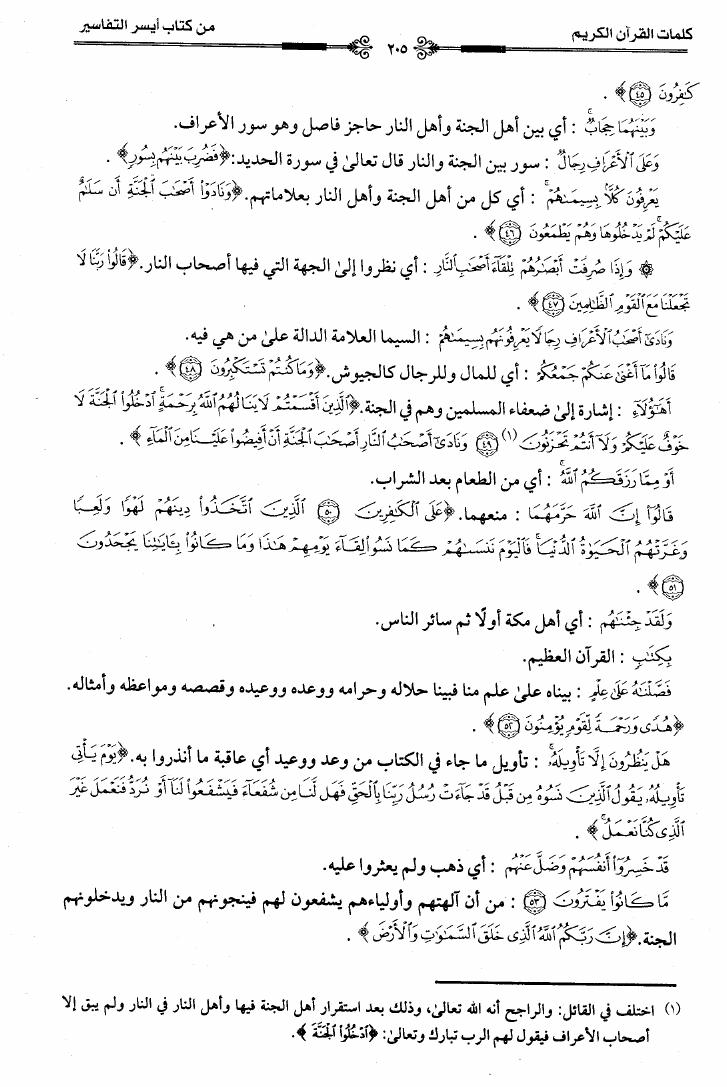 كلمات القرآن الكريم ٢٠٥ من كتاب أيسر التفاسير
كَٰفِرُونَ ﴿٤٥﴾ ﴾ .
وَبَيْنَهُمَا حِجَابٌ ۚ : أي بين أهل الجنة وأهل النار حاجز فاصل وهو سور الأعراف.
وَعَلَى ٱلْأَعْرَافِ رِجَالٌ : سور بين الجنة والنار قال تعالىٰ في سورة الحديد: ﴿ فَضُرِبَ بَيْنَهُم بِسُورٍ ﴾ .
يَعْرِفُونَ كُلًّۢا بِسِيمَىٰهُمْ ۚ : أي كل من أهل الجنة وأهل النار بعلاماتهم. ﴿ وَنَادَوْا۟ أَصْحَٰبَ ٱلْجَنَّةِ أَن سَلَٰمٌ
عَلَيْكُمْ ۚ لَمْ يَدْخُلُوهَا وَهُمْ يَطْمَعُونَ ﴿٤٦﴾ ﴾ .
۞ وَإِذَا صُرِفَتْ أَبْصَٰرُهُمْ تِلْقَآءَ أَصْحَٰبِ ٱلنَّارِ : أي نظروا إلىٰ الجهة التي فيها أصحاب النار. ﴿ قَالُوا۟ رَبَّنَا لَا
تَجْعَلْنَا مَعَ ٱلْقَوْمِ ٱلظَّٰلِمِينَ ﴿٤٧﴾ ﴾ .
وَنَادَىٰٓ أَصْحَٰبُ ٱلْأَعْرَافِ رِجَالًا يَعْرِفُونَهُم بِسِيمَىٰهُمْ : السيما العلامة الدالة علىٰ من هي فيه.
قَالُوا۟ مَآ أَغْنَىٰ عَنكُمْ جَمْعُكُمْ : أي للمال وللرجال كالجيوش. ﴿ وَمَا كُنتُمْ تَسْتَكْبِرُونَ ﴿٤٨﴾ ﴾ .
أَهَٰٓؤُلَآءِ : إشارة إلىٰ ضعفاء المسلمين وهم في الجنة. ﴿ ٱلَّذِينَ أَقْسَمْتُمْ لَا يَنَالُهُمُ ٱللَّهُ بِرَحْمَةٍ ۚ ٱدْخُلُوا۟ ٱلْجَنَّةَ لَا
خَوْفٌ عَلَيْكُمْ وَلَآ أَنتُمْ تَحْزَنُونَ (١) ﴿٤٩﴾ وَنَادَىٰٓ أَصْحَٰبُ ٱلنَّارِ أَصْحَٰبَ ٱلْجَنَّةِ أَنْ أَفِيضُوا۟ عَلَيْنَا مِنَ ٱلْمَآءِ ﴾ .
أَوْ مِمَّا رَزَقَكُمُ ٱللَّهُ ۚ : أي من الطعام بعد الشراب.
قَالُوٓا۟ إِنَّ ٱللَّهَ حَرَّمَهُمَا : منعهما. ﴿ عَلَى ٱلْكَٰفِرِينَ ﴿٥٠﴾ ٱلَّذِينَ ٱتَّخَذُوا۟ دِينَهُمْ لَهْوًا وَلَعِبًا
وَغَرَّتْهُمُ ٱلْحَيَوٰةُ ٱلدُّنْيَا ۚ فَٱلْيَوْمَ نَنسَىٰهُمْ كَمَا نَسُوا۟ لِقَآءَ يَوْمِهِمْ هَٰذَا وَمَا كَانُوا۟ بِـَٔايَٰتِنَا يَجْحَدُونَ
﴿٥١﴾ ﴾ .
وَلَقَدْ جِئْنَٰهُم : أي أهل مكة أولًا ثم سائر الناس.
بِكِتَٰبٍ : القرآن العظيم.
فَصَّلْنَٰهُ عَلَىٰ عِلْمٍ : بيناه علىٰ علم منا فبينا حلاله وحرامه ووعده ووعيده وقصصه ومواعظه وأمثاله.
﴿ هُدًى وَرَحْمَةً لِّقَوْمٍ يُؤْمِنُونَ ﴿٥٢﴾ ﴾ .
هَلْ يَنظُرُونَ إِلَّا تَأْوِيلَهُۥ ۚ : تأويل ما جاء في الكتاب من وعد ووعيد أي عاقبة ما أنذروا به. ﴿ يَوْمَ يَأْتِى
تَأْوِيلُهُۥ يَقُولُ ٱلَّذِينَ نَسُوهُ مِن قَبْلُ قَدْ جَآءَتْ رُسُلُ رَبِّنَا بِٱلْحَقِّ فَهَل لَّنَا مِن شُفَعَآءَ فَيَشْفَعُوا۟ لَنَآ أَوْ نُرَدُّ فَنَعْمَلَ غَيْرَ
ٱلَّذِى كُنَّا نَعْمَلُ ۚ ﴾ .
قَدْ خَسِرُوٓا۟ أَنفُسَهُمْ وَضَلَّ عَنْهُم : أي ذهب ولم يعثروا عليه.
مَّا كَانُوا۟ يَفْتَرُونَ ﴿٥٣﴾ : من أن آلهتهم وأولياءهم يشفعون لهم فينجونهم من النار ويدخلونهم
الجنة. ﴿ إِنَّ رَبَّكُمُ ٱللَّهُ ٱلَّذِى خَلَقَ ٱلسَّمَٰوَٰتِ وَٱلْأَرْضَ ﴾ .
(١) اختلف في القائل: والراجح أنه الله تعالىٰ، وذلك بعد استقرار أهل الجنة فيها وأهل النار في النار ولم يبق إلا
أصحاب الأعراف فيقول لهم الرب تبارك وتعالىٰ: ﴿ ٱدْخُلُوا۟ ٱلْجَنَّةَ ﴾ .